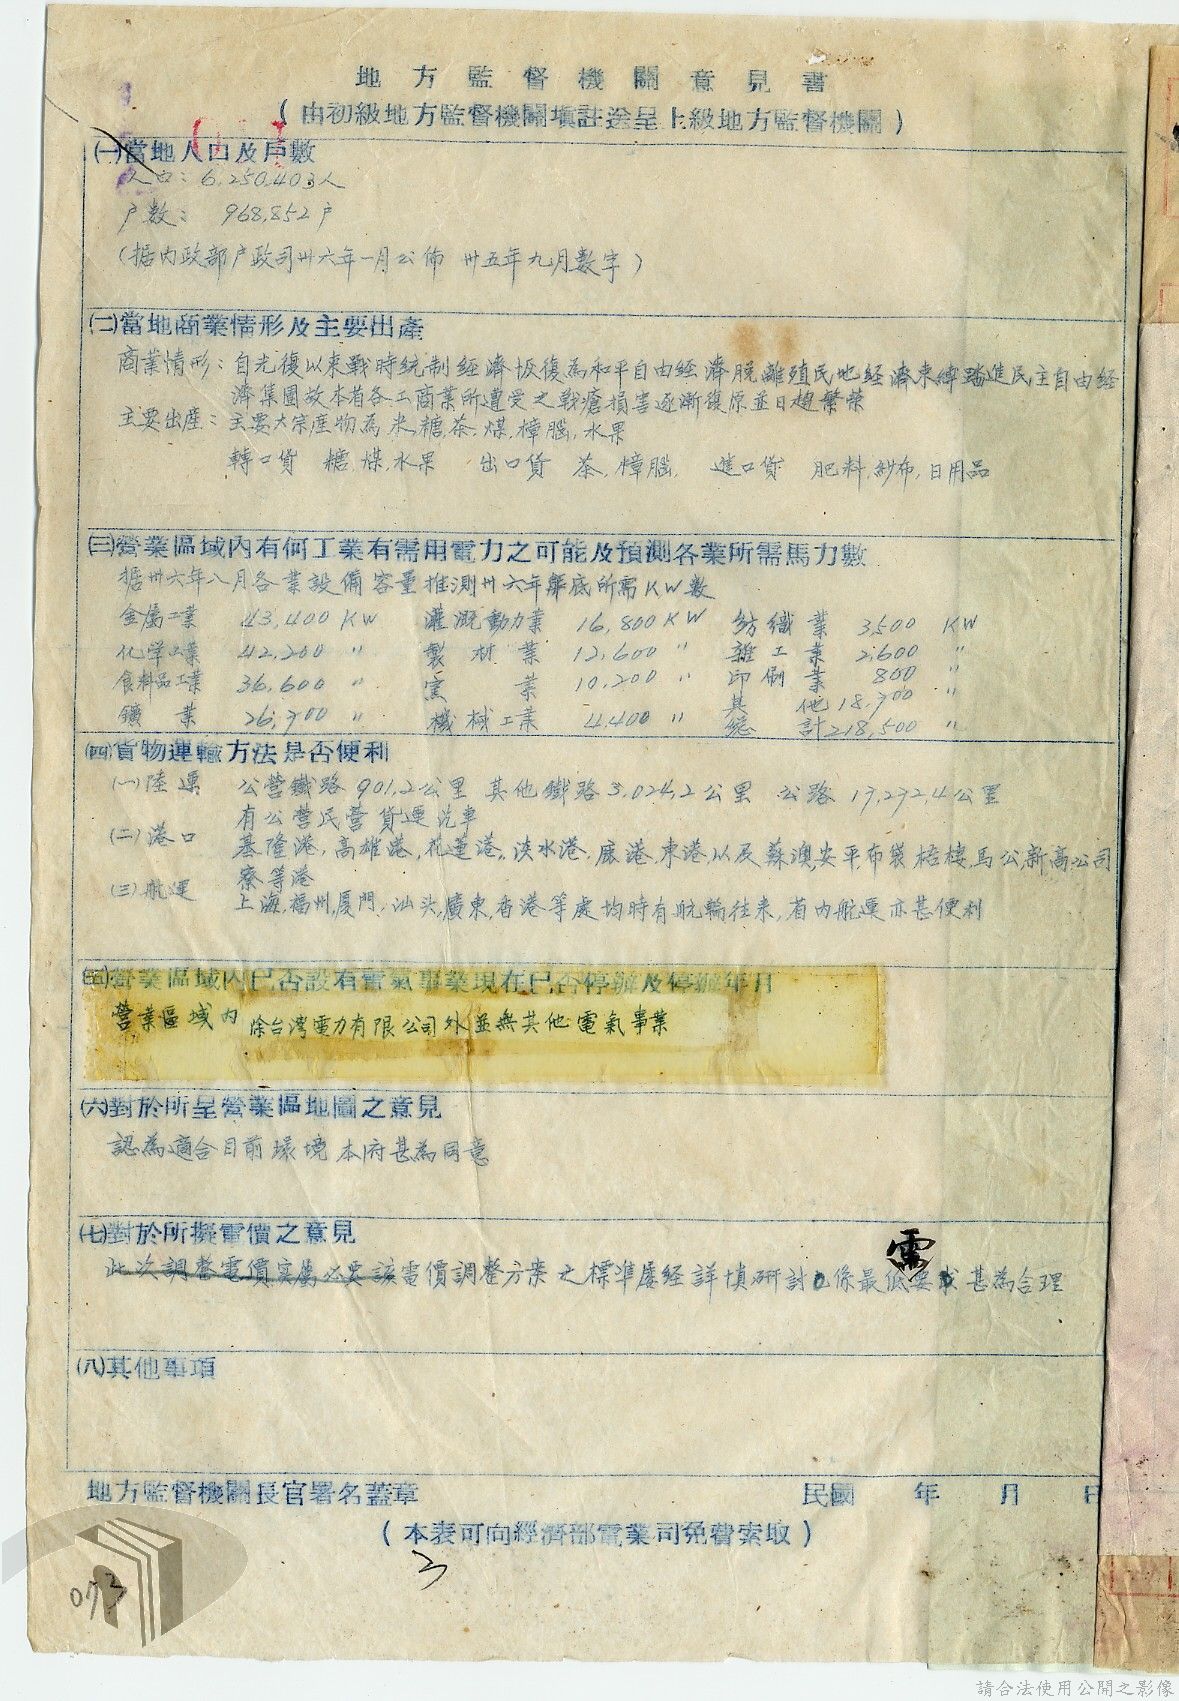 地方監督機關意見書
(由初級地方監督機關填註送呈上級地方監督機關)
㈠當地人口及戶數
人口: 6,250,403人
戶數: 968,852戶
(据內政部戶政司卅六年一月公佈 卅五年九月數字)
㈡當地商業情形及主要出產
商業情形: 自光復以來戰時統制經濟恢復為和平自由經濟脫離殖民地經濟束縛踏進民主自由經
濟集團故本省各工商業所遭受之戰瘡損害逐漸復原並日趨繁榮
主要出產: 主要大宗產物為米,糖,茶,煤,樟腦,水果
轉口貨 糖,煤,水果 出口貨 茶,樟腦, 進口貨 肥料,紗布,日用品
㈢營業區域內有何工業有需用電力之可能及預測各業所需馬力數
据卅六年八月各業設備容量推測卅六年年底所需KW數
金屬工業 43,400 KW 灌溉動力業 16,800 KW 紡織業 3,500 KW
化學工業 42,200 〃 製材業 12,600 〃 雜工業 2,600 〃
食料品工業 36,600 〃 窯業 10,200 〃 印刷業 800 〃
鑛業 26,700 〃 機械工業 4,400 〃 其他 18,700 〃
總計 218,500 〃
㈣貨物運輸方法是否便利
(一)陸運 公營鐵路901.2公里 其他鐵路3,024.2公里 公路17,272.4公里
有公營民營貨運汽車
(二)港口 基隆港,高雄港,花蓮港,淡水港,麻港,東港,以及蘇澳,安平,布袋,梧棲,馬公,新高,公司
寮等港
(三)航運 上海,福州,廈門,汕头,廣東,香港等處均時有航輪往來,省內航運亦甚便利
㈤營業區域內已否設有電氣事業現在已否停辦及停辦年月
營業區域內 除台灣電力有限公司外並無其他電氣事業
㈥對於所呈營業區地圖之意見
認為適合目前環境本府甚為同意
㈦對於所擬電價之意見
此次調整電價實屬必要該電價調整方案之標準屢經詳慎研討係最低需求甚為合理
㈧其他事項
地方監督機關長官署名蓋章 民國 年 月 日
(本表可向經濟部電業司免費索取)
3
073
請合法使用公開之影像